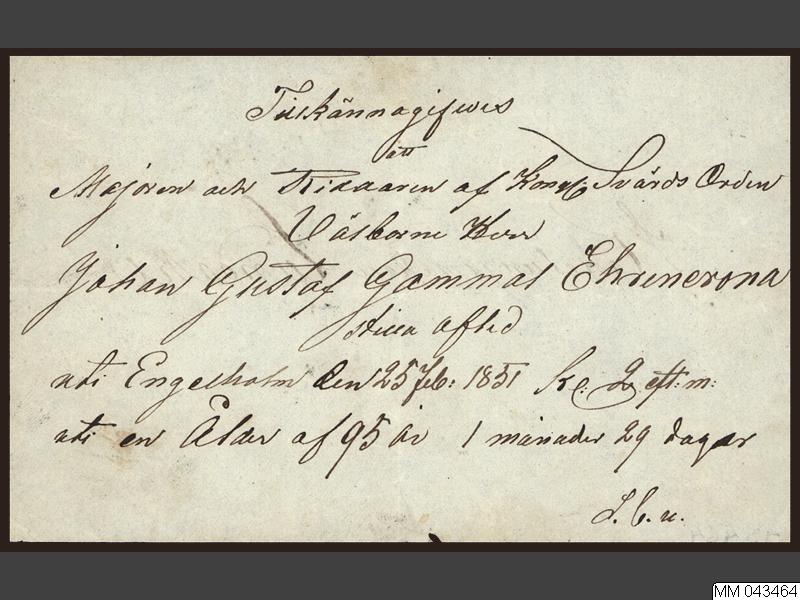 Tillkännagifwes
att
Majoren och Riddaren af Kongl. Svärds Orden
Välborne Herr
Johan Gustaf Gammal Ehrencrona
stilla afled
uti Engelholm den 25 Feb: 1851 kl. 2 eft:m:
uti en Ålder af 95 år 1 månader 29 dagar
S.C.u.
MM 043464